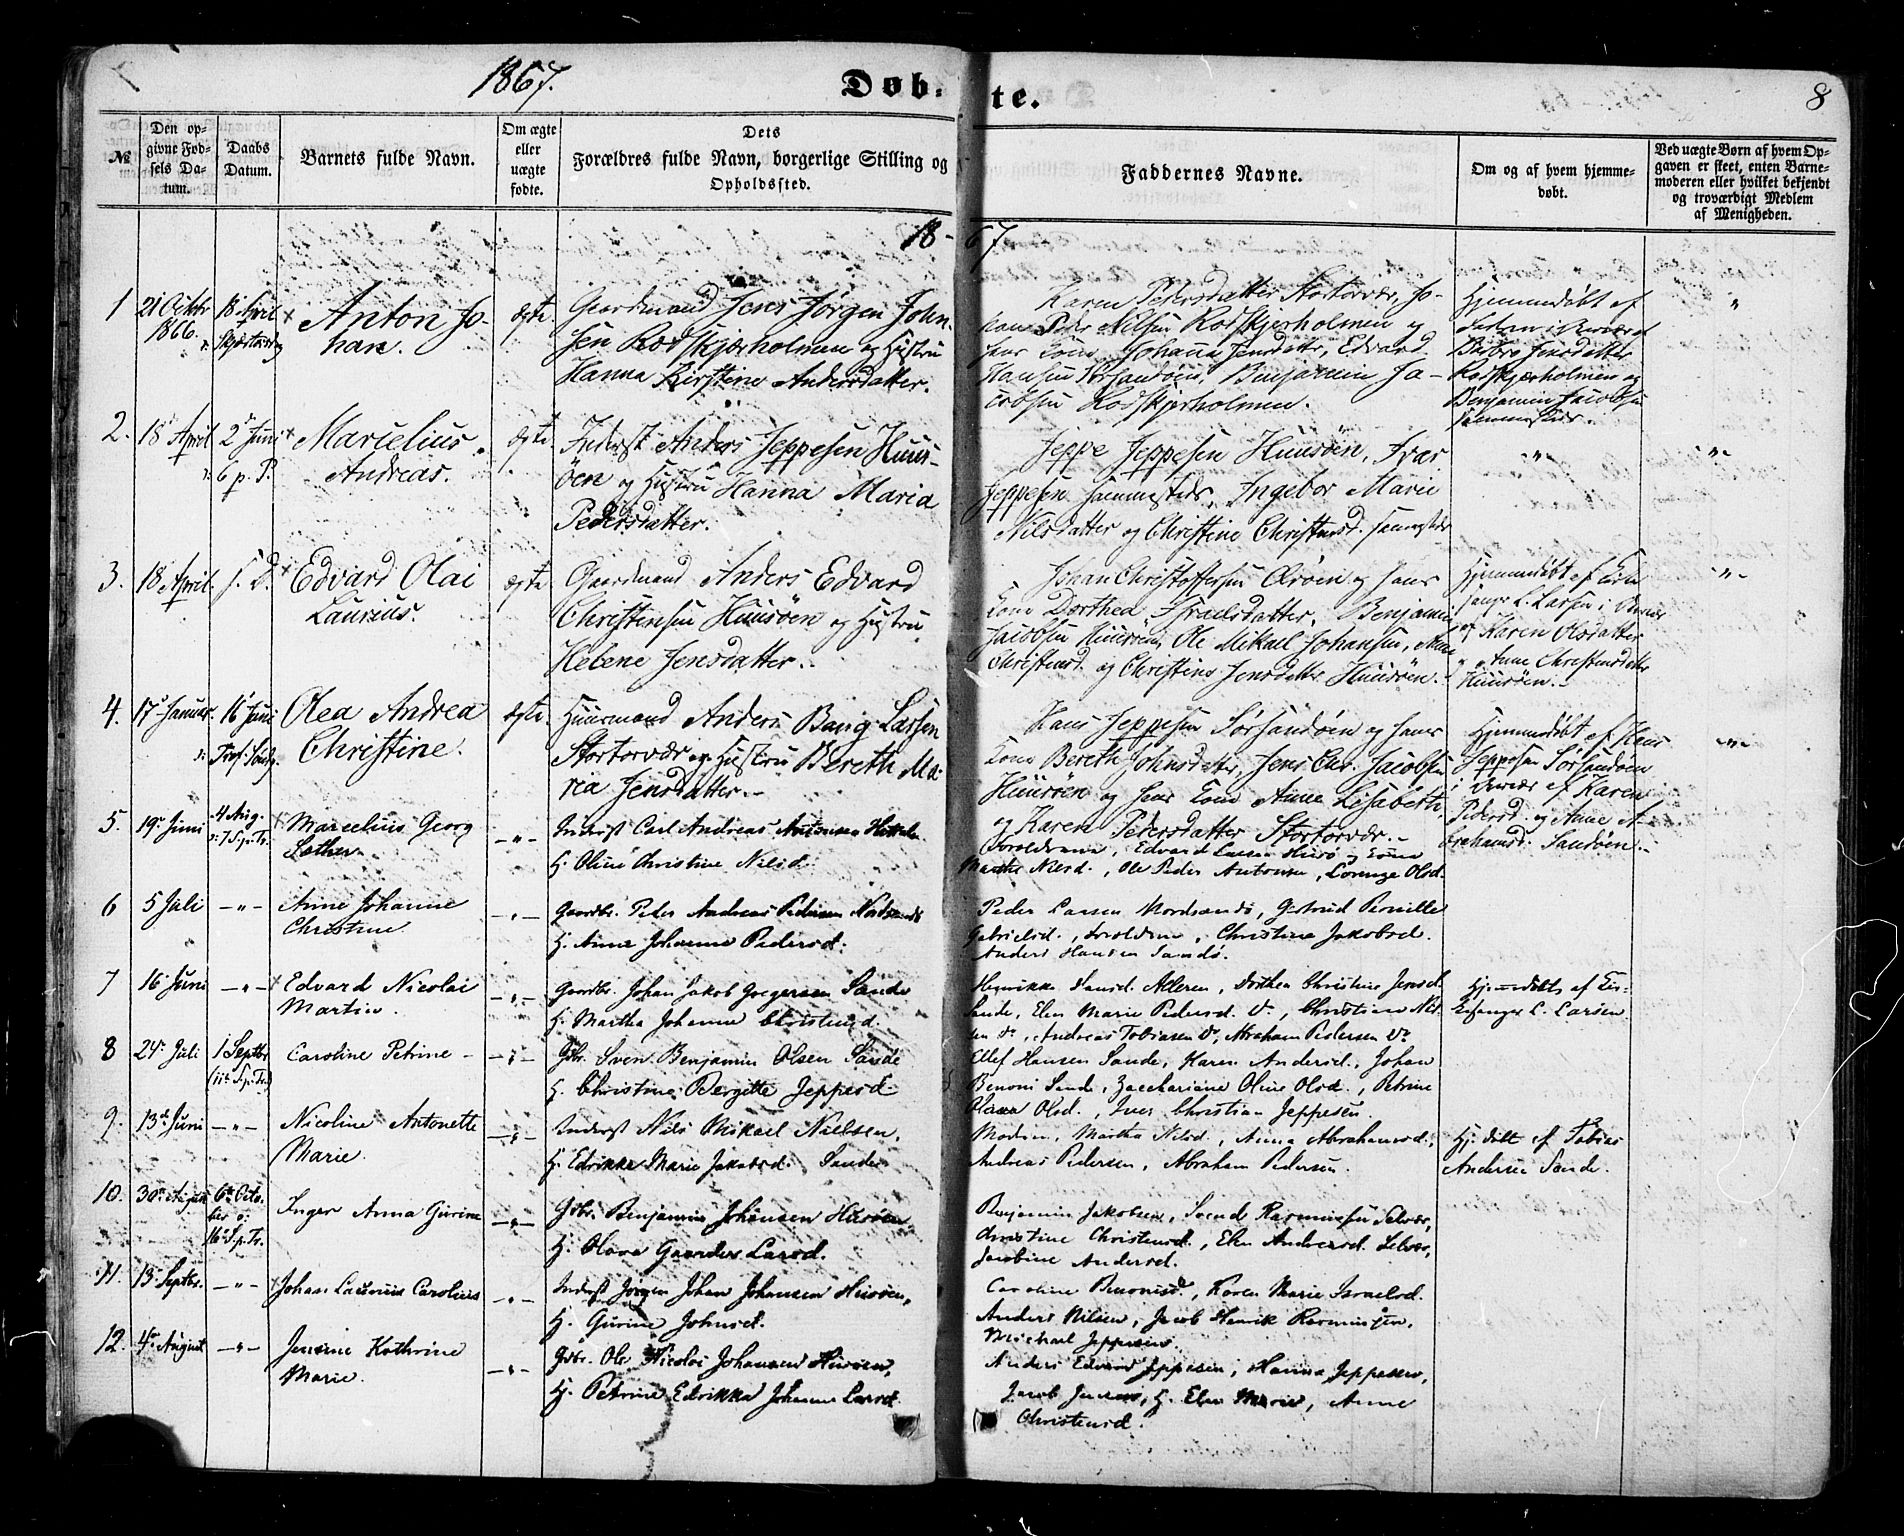 1867.
Døb-
te.
8
№
Den op-
givne Fød-
sels Da-
tum.
Daabs
Datum.
Barnets fulde Navn.
Om ægte
eller
uægte
fødte.
Dets
Forældres fulde Navn, borgerlige Stilling og
Opholdssted.
Faddernes Navne.
Om og af hvem hjemme-
døbt.
Ved uægte Børn af hvem Op-
gaven er skeet, enten Barne-
moderen eller hvilket bekjendt
og troværdigt Medlem
af Menigheden.
18-67
1
21 Octbr
1866.
18 April
Anton Jo-
han.
ægte
Gaardmand Jens Jørgen John-
sen Rodskjærholmen og Hustru
Hanna Kirstine Andersdatter.
Karen Pedersdatter Stortorvær, Jo-
han Peder Nilsen Rodskjærholmen og
hans Kone Johanna Jensdatter, Edvard
Hansen Sørsandøen, Benjamin Ja-
cobsen Rodskjerholmen.
Hjemmedøbt af
Barbro Jensdatter
Rodskjærholmen og
Benjamin Jacobsen
sammesteds.
"
2.
18 April
2 Juni
6 p. P.
Marcelius
Andreas.
ægte
Inderst Anders Jeppesen Huus-
øen og Hustru Hanna Maria
Pedersdatter.
Jeppe Jeppesen Huusøen, Ivar
Jeppesen sammesteds, Ingebor Marie
Nilsdatter og Christine Christensd. sammesteds
-"-
-"-
3.
18 April.
s. D.
Edvard Olai
Laurius.
ægte
Gaardmand Anders Edvard
Christensen Huusøen og Hustru
Helene Jensdatter.
Johan Christoffersen og hans
Kone Dorthea Israelsdatter, Benjamin
Jacobsen Huusøen, Ole Mikael Johansen,
Christensd. og Christine Jensdatter Huusøen.
Hjemmedøbt af Kirke
sanger L. Larsen i
og Karen Olsdatter
" Anne Christensdatter
Huusøen.
-"-
4.
17 Januar.
16 Juni
Olea Andrea
Christine.
ægte.
Huusmand Anders Bang Larsen
Stortorvær og Hustru Bereth Ma-
ria Jensdatter.
Hans Jeppesen Sørsandøen og hans
Kone Bereth Johnsdatter, Jens Chr. Jacobsen
Huusøen og hans Kone Anne Lisabeth,
og Karen Pedersdatter Stortorvær.
Hjemmedøbt af Hans
Jeppesen Sørsandøen
af Karen
Pedersd. og Anne A-
brahamsd. Sandøen.
-"-
5.
19 Juni
4 Aug.
7 S. p. Tr.
Marcelius Georg
-"-
Inderst Carl Andreas Antonsen
H. Oline Christine Nilsd.
Forældrene, Edvard Larsen Husø og Kone
Marthe Nilsd., Ole Peder Antonsen, Lorense Olsd.
6
5 Juli
-"-
Anne Johanne
Christine
-"-
Gaardbr. Peder Andreas Pedersen Nordsandø
H. Anne Johanne Pedersd.
Peder Larsen Nordsandø, Gertrud Pernille
Gabrielsd., Forældrene, Christine Jakobsd.
Anders Hansen Sandø.
7
16 Juni
-"-
Edvard Nicolai
Martin.
-"-
Gaardbr. Johan Jakob Gregersen Sande
H. Martha Johanne Christensd.
Henrikke Hansd. Alleren, Dorthea Christine Jensd.
Sande, Elen Marie Pedersd. do, Christian Nil-
sen do, Andreas Tobiasen do, Abraham Pedersen do
Hjemmedøbt af Kir-
kesanger L. Larsen.
8
24 Juli
1 Septbr
(11 S. p. Tr.)
Caroline Petrine
-"-
Gbr. Svend Benjamin Olsen Sande
H. Christine Bergitte Jeppesd.
Ellef Hansen Sande, Karen Andersd., Johan
Benoni Sande, Zacchariane Oline Olsd., Petrine
Olava Olsd., Iver Christian Jeppesen.
9.
13 Juni
-"-
Nicoline Antonette
Marie.
-"-
Inderst Nils Mikael Nielsen,
H. Edrikke Marie Jakobsd. Sande
Modren, Martha Nilsd., Anna Abrahamsd.,
Andreas Pedersen, Abraham Pedersen.
Hj. døbt af Tobias
Andersen Sande.
10.
30 August
6te Octo-
ber
16 S. p. Tr.
Inger Anna Gurine
-"-
Gdbr. Benjamin Johansen Husøen
H. Olava Larsd.
Benjamin Jakobsen, Svend Rasmussen Selvær,
Christine Christensd., Elen Andersd. Selvær,
Jacobine Andersd.
11.
13 Septbr.
-"-
Johan Laurius Carolius
-"-
Inderst Jørgen Johan Johansen Husøen,
H. Gurine Johnsd.
Caroline Benonisd., Karen Marie Israelsd.
Anders Nilsen, Jacob Henrik Rasmussen,
Michael Jeppesen.
12.
4 August
-"-
Jensine Kathrine
Marie.
-"-
Gdbr. Ole Nicolai Johansen Husøen,
H. Petrine Edrikka Johanne Larsd.
Anders Edvard Jeppesen, Hanna Jeppesen,
Jacob Jensen, H. Elen Marie, Anne
Christensd.